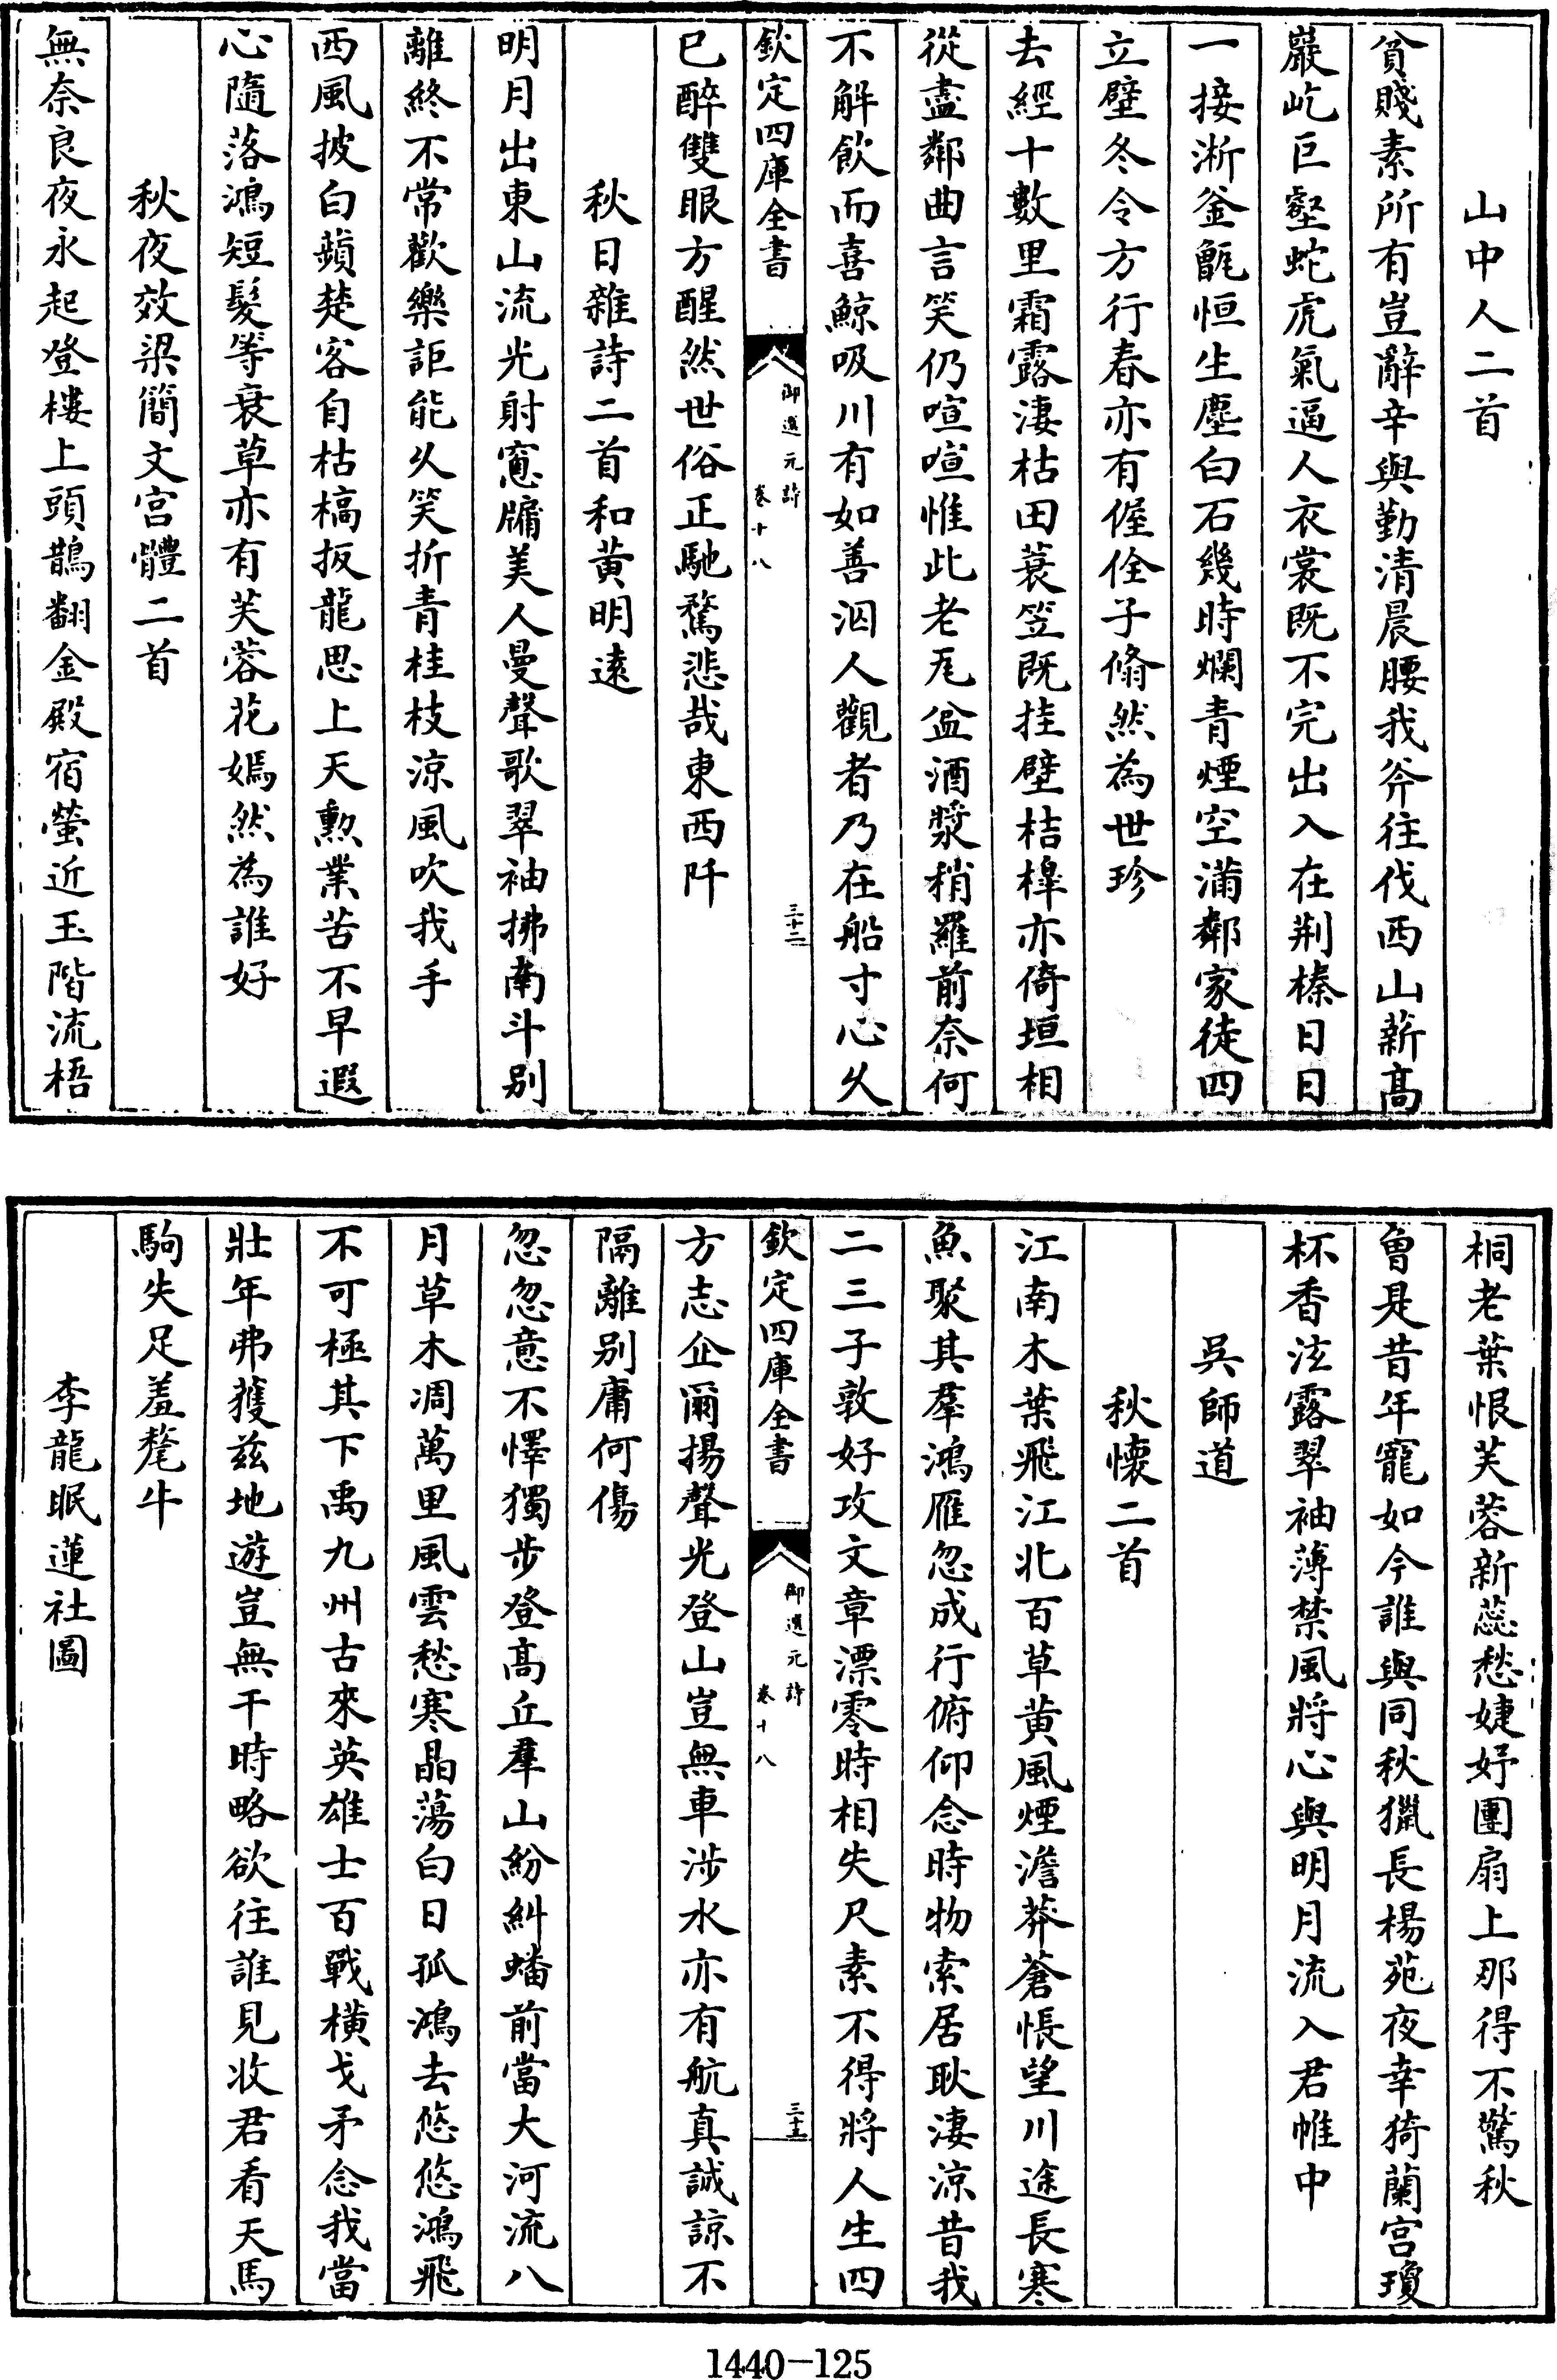 山中人二首
貧賤素所有豈辭辛與勤清晨腰我斧往伐西山薪高
巖屹巨壑蛇虎氣逼人衣裳既不完出入在荆榛日日
一接淅釜甑恒生塵白石幾時爛青煙空滿鄰家徒四
立壁冬令方行春亦有偓佺子翛然為世珍
去經十數里霜露淒枯田蓑笠既挂壁桔槹亦倚垣相
從盡鄰曲言笑仍喧喧惟此老瓦盆酒漿稍羅前奈何
不解飲而喜鯨吸川有如善泅人觀者乃在船寸心久
欽定四庫全書
御選元詩
卷十八
三十二
已醉雙眼方醒然世俗正馳騖悲哉東西阡
秋日雜詩二首和黄明遠
明月出東山流光射窻牖美人曼聲歌翠袖拂南斗别
離終不常歡樂詎能久笑折青桂枝涼風吹我手
西風披白蘋楚客自枯槁扳龍思上天勲業苦不早遐
心隨落鴻短髮等衰草亦有芙蓉花嫣然為誰好
秋夜效梁簡文宫體二首
無奈良夜永起登樓上頭鵲翻金殿宿螢近玉階流梧
桐老葉恨芙蓉新蕊愁婕妤團扇上那得不驚秋
曾是昔年寵如今誰與同秋獵長楊苑夜幸猗蘭宫瓊
杯香泫露翠袖薄禁風將心與明月流入君帷中
吳師道
秋懷二首
江南木葉飛江北百草黄風煙澹莽蒼悵望川途長寒
魚聚其羣鴻雁忽成行俯仰念時物索居耿淒涼昔我
二三子敦好攻文章漂零時相失尺素不得將人生四
欽定四庫全書
御選元詩
卷十八
三十三
方志企爾揚聲光登山豈無車涉水亦有航真誠諒不
隔離别庸何傷
忽忽意不懌獨步登高丘羣山紛糾蟠前當大河流八
月草木凋萬里風雲愁寒晶蕩白日孤鴻去悠悠鴻飛
不可極其下禹九州古來英雄士百戰横戈矛念我當
壯年弗獲兹地遊豈無干時略欲往誰見收君看天馬
駒失足羞氂牛
李龍眠蓮社圖
1440-125